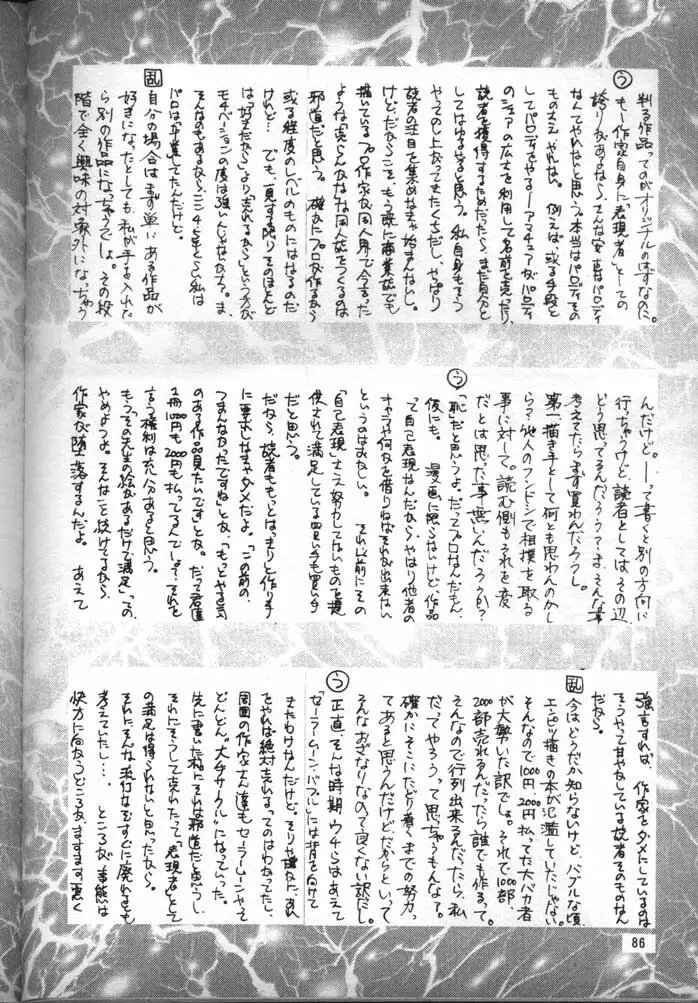 判る作品ってのがオリジナルのはずなのに。
う
もし作家自身に「表現者」としての
誇りがあるなら、そんな安直なパロディ
なんてやれないと思う。本当はパロディその
ものさえやれない。例えば、或る手段と
してパロディをやる―アマチュアがパロディ
のシェアの広さを利用して名前を売ったり、
読者を獲得するためだったら、まだ自分と
してはゆるせると思う。私自身もそう
やってのし上がってきたくちだし、やっぱり
読者の注目を集めなきゃ始まんないし。
けど、だからこそ、もう既に商業誌でも
描いているプロ作家が同人界で今さらった
ような実らんがなみな同人誌をつくるのは
邪道だと思う。確かにプロが作るから
或る程度のレベルのものにはなるのだ
けれど…でも、一見する限りそのほとんど
は「好きだから」より「売れるから」という方が
モチベーションの度は強いんじゃないかな？ま、
そんなのもあるから、ここ4~5年くらい私は
パロは「卒業」してたんだけど。
乱
自分の場合はまず単にある作品が
好きになったとしても、私が手を入れた
ら別の作品になっちゃうしょ。その段
階で全く興味の対象外になっちゃう
んだけど。―って書くと別の方向に
行っちゃうけど読者としてはその辺
どう思ってるんだろう？ ―ま、そんな事
考えてたらまず買わんだろうし。
第一描き手として何とも思わんのかし
ら？他人のフンドシで相撲を取る
事に対して。読む側もそれを変
だとは思った事無いんだろうか？
う
「恥」だと思うよ。だってプロなんだもん、
仮にも。漫画に限らないけど、作品
って自己表現なんだから、やはり他者の
キャラや何かを借りねばそれが出来ない
というのはおかしい。それ以前にその
「自己表現」さえ努力してないものを提
供されて満足している買い手も買い手
だと思う。
だから、読者ももっとはっきりと作り手
に要求しなきゃダメだよ。「この前の、
つまんなかったですね」とか、「もっとやる気
のある作品見たいです」とか。だって君達
1冊1000円も2000円も払ってるんでしょ？それを
言う権利は充分あると思う。
もう「その先生の絵があるだけで満足」っての、
やめようよ。そんな甘やかし続けてるから、
作家が堕落するんだよ。あえて
強言すれば、作家をダメにしているのは
そうやって甘やかしている読者そのものなん
だから。
乱
今はどうだか知らないけど、バブルな頃、
エンピツ描きの本が氾濫していたじゃない。
そんなので1000円、2000円払ってた大バカ者
が大勢いた訳でしょ。それで1000部、
2000部売れるんだったら誰でも作るって。
そんなので行列出来るんだったら、私
だってやろうって思っちゃうもんな？。
確かにそこにたどり着くまでの努力っ
てあると思うんだけど、だからといって
そんなおざなりなのって良くない訳だし。
う
正直、そんな時期ウチらはあえて
「セーラームーン・バブル」には背を向けて
きたわけなんだけど。そりゃ嫌なハナシ、あ
とやれば絶対売れるってのはわかってたし、
周囲の作家さん達もセーラームーンやって
どんどん「大手サークル」になっていった。
先に書いた様にそれは邪道だと思うし、
それにそうして売れたって「表現者」として
の満足は得られないと思ったから。
それにそんな流行なぞすぐに廃れるとも
考えていたし…。ところが、事態は
快方に向かうどころか、ますます悪く
86